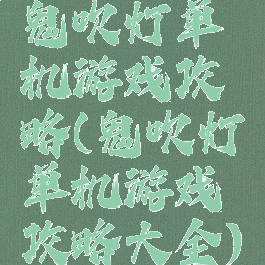 鬼吹灯单
机游戏攻
略(鬼吹灯
单机游戏
攻略大全)